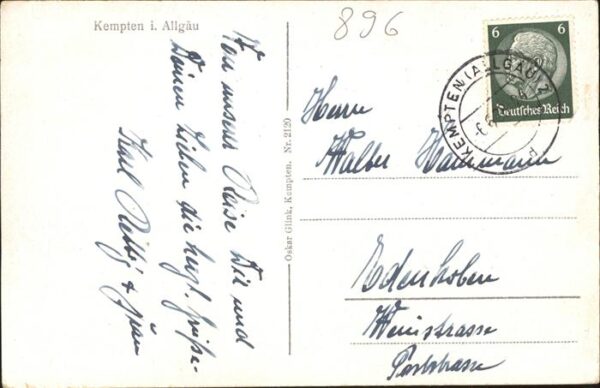 Kempten i. Allgäu
896
6 6
Deutsches Reich
KEMPTEN (ALLGÄU) 2
Von unserer Reise Dir und
Deinen Lieben die herzl. Grüße
Karl & Frau
Oskar Glink, Kempten. Nr. 2120
Herrn
Walter
Edenkoben
Weinstrasse
Poststrasse